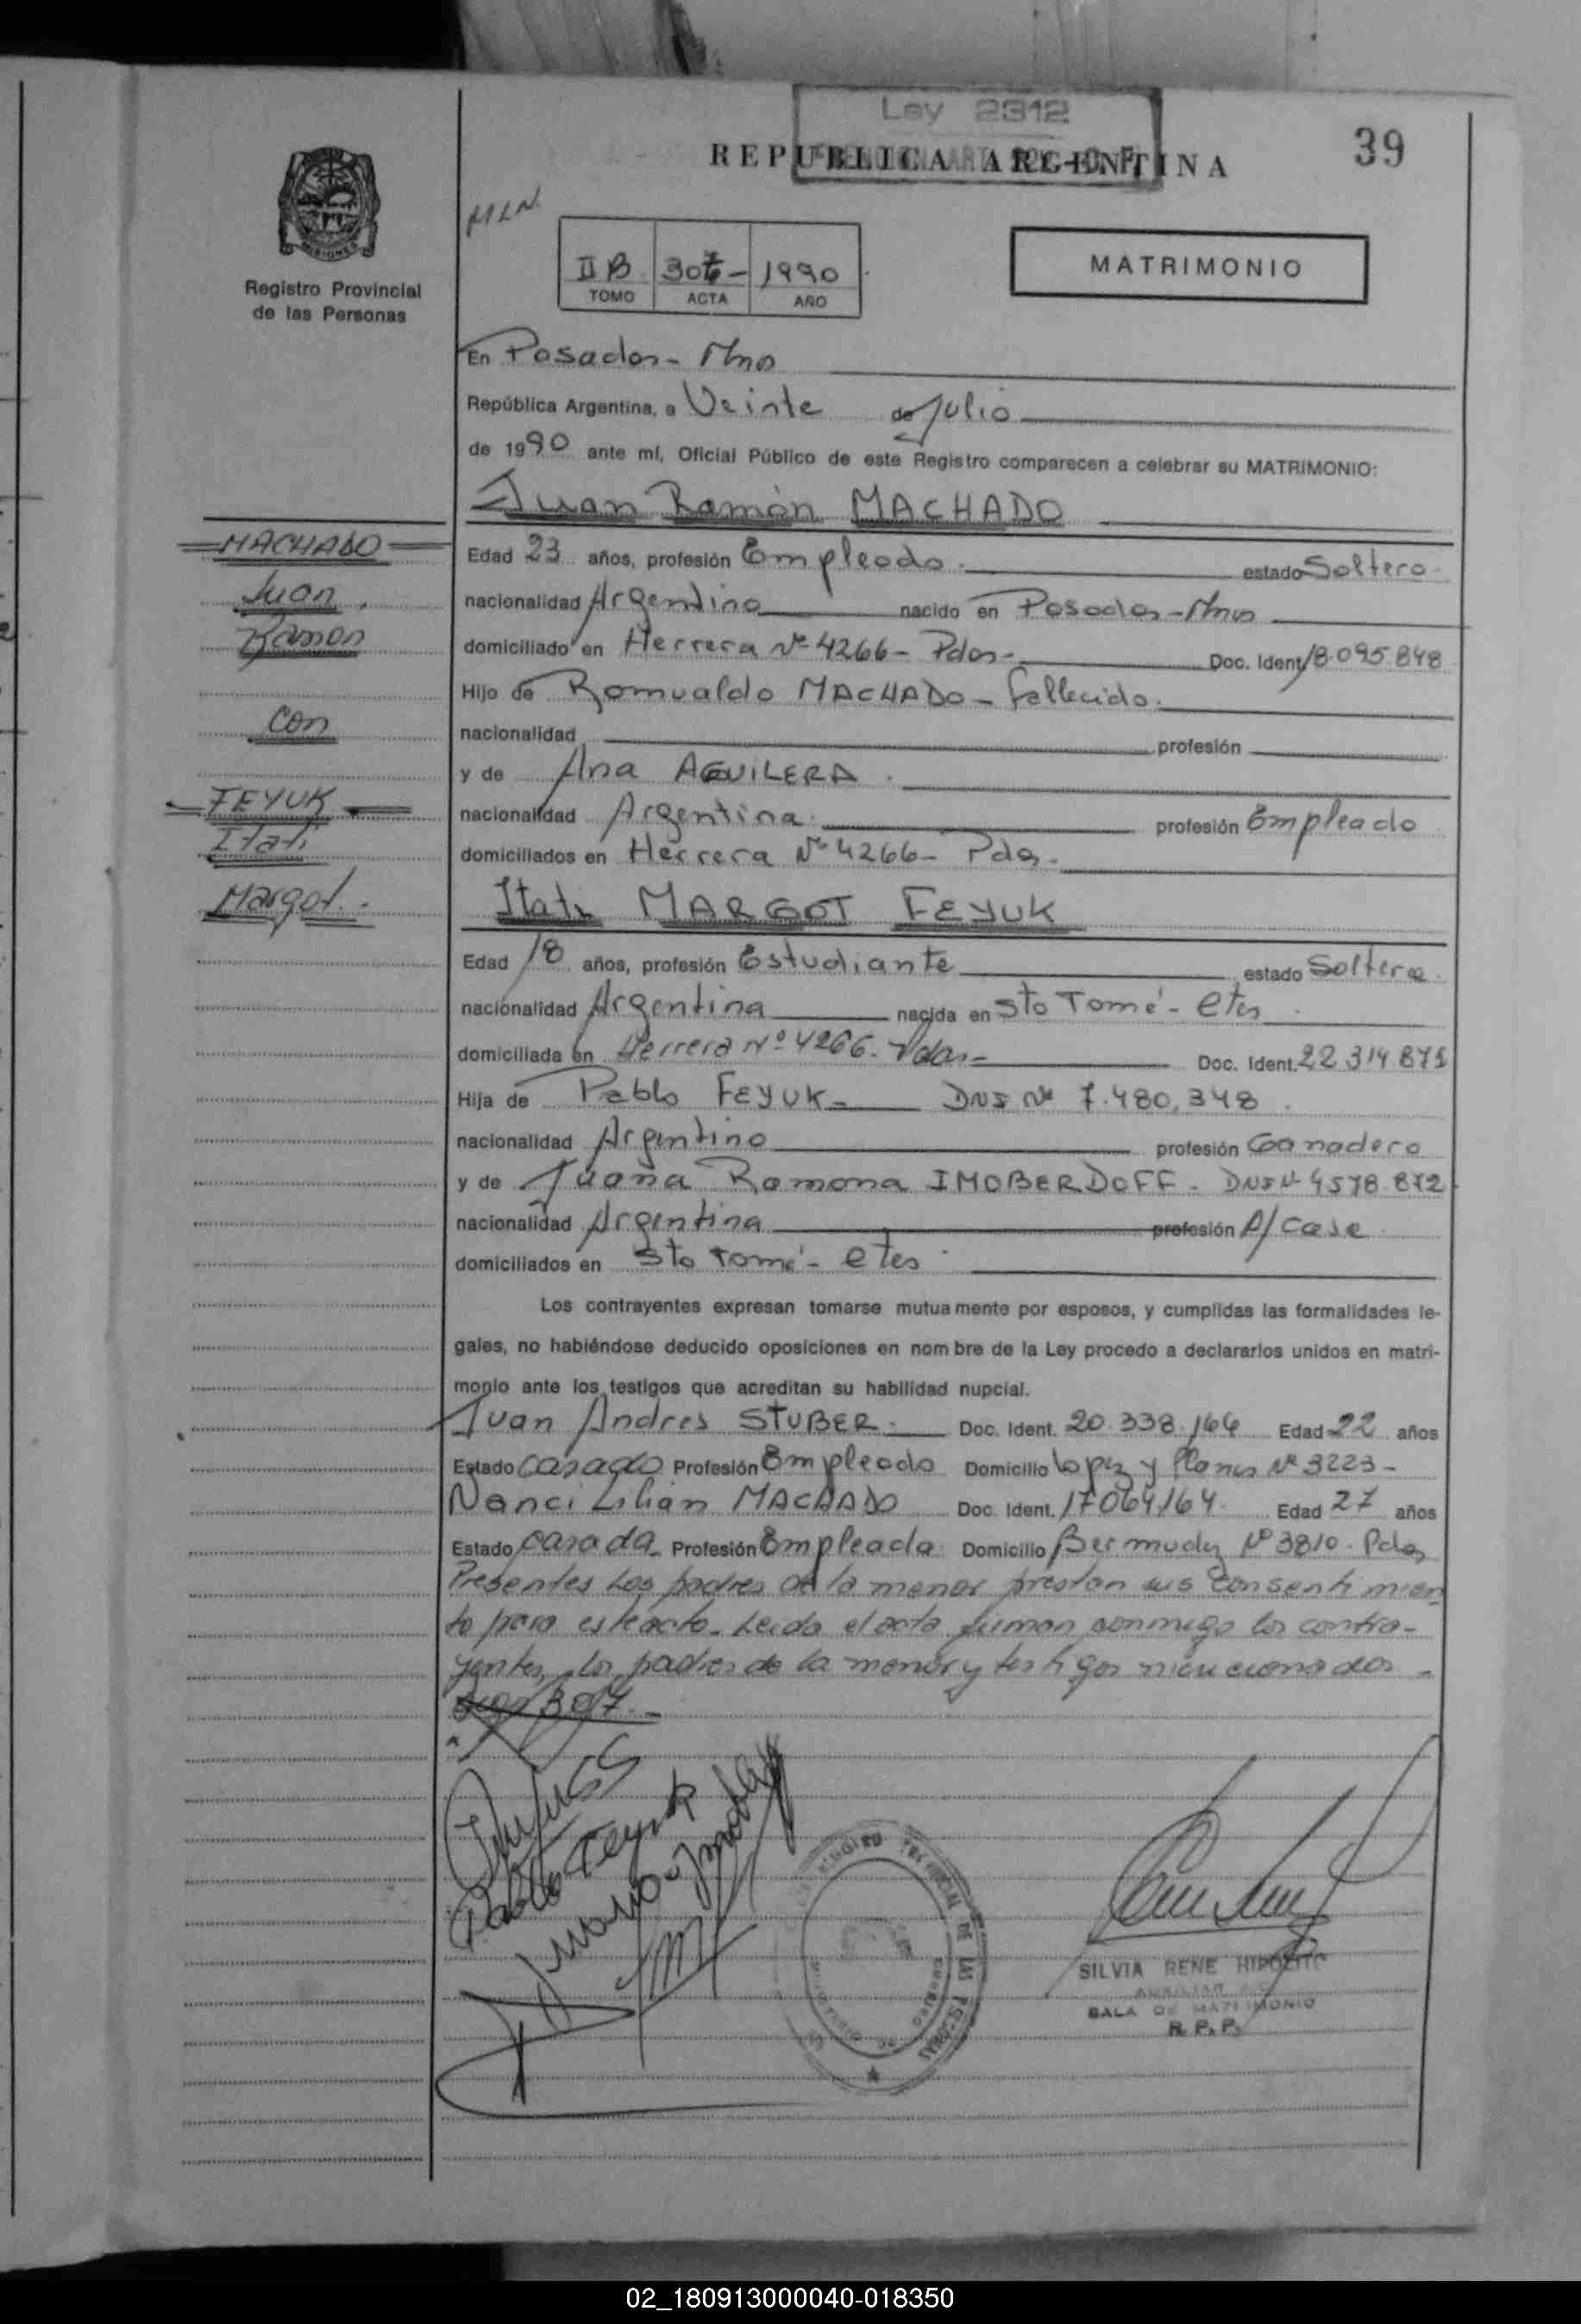 Ley 2312
REPUBLICA ARGENTINA
39
MLN.
Registro Provincial
de las Personas
II B 307- 1990
TOMO ACTA AÑO
MATRIMONIO
En Posadas - Mnes
República Argentina, a Veinte de Julio
de 1990 ante mí, Oficial Público de este Registro comparecen a celebrar su MATRIMONIO:
Juan Ramón MACHADO
MACHADO
Juan
Ramon
con
FEYUK
Itati
Margot.-
Edad 23 años, profesión Empleado. estado Soltero
nacionalidad Argentino nacido en Posadas - Mnes
domiciliado en Herrera Nº 4266 - Pdas - Doc. Ident. 18.095.848
Hijo de Romualdo MACHADO - fallecido.
nacionalidad profesión
y de Ana AGUILERA.
nacionalidad Argentina. profesión Empleado
domiciliados en Herrera Nº 4266 - Pdas.
Itati MARGOT FEYUK
Edad 18 años, profesión Estudiante estado Soltera
nacionalidad Argentina nacida en Sto Tomé - Ctes
domiciliada en Herrera Nº 4266. Pdas - Doc. Ident. 22 314 871
Hija de Pablo FEYUK - DNI Nº 7.480.348.
nacionalidad Argentino profesión Ganadero
y de Juana Ramona IMOBERDOFF - DNI Nº 4578.872
nacionalidad Argentina profesión A/ Casa
domiciliados en Sto Tomé - Ctes.
Los contrayentes expresan tomarse mutuamente por esposos, y cumplidas las formalidades le-
gales, no habiéndose deducido oposiciones en nombre de la Ley procedo a declararlos unidos en matri-
monio ante los testigos que acreditan su habilidad nupcial.
Juan Andres STUBER. Doc. Ident. 20.338.164 Edad 22 años
Estado Casado Profesión Empleado Domicilio Lopez y Planes Nº 3223 -
Nanci Lilian MACHADO Doc. Ident. 17064164. Edad 27 años
Estado Casada Profesión Empleada Domicilio Bermudez Nº 3810. Pdas
Presentes los padres de la menor prestan sus consentimien
to para este acto. Leida el acta firman conmigo los contra-
yentes, los padres de la menor y testigos mencionados -
307. -
Pablo Feyuk
SILVIA RENE HIPOLITO
SALA DE MATRIMONIO
R. P. P.
02_180913000040-018350